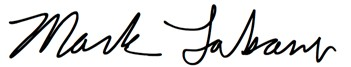 Mark Labany